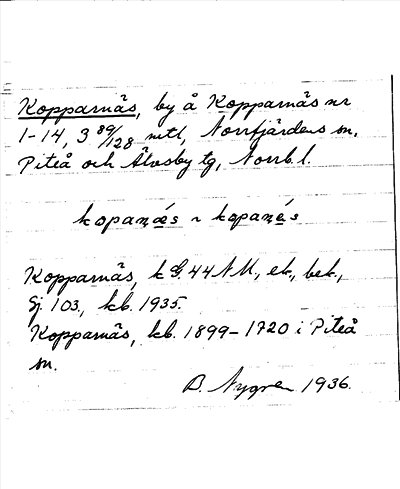 Kopparnäs, by å Kopparnäs nr
1-14, 3 89/128 mtl, Norrfjärdens sn,
Piteå och Älvsby tg, Norrb. l.
kopanæs ~ kopanés
Kopparnäs, k G. 44 NV., ek., bek.,
Sj. 103, kb. 1935.
Kopparnäs, kb. 1899-1720 i Piteå
sn.
B. Nygren 1936.